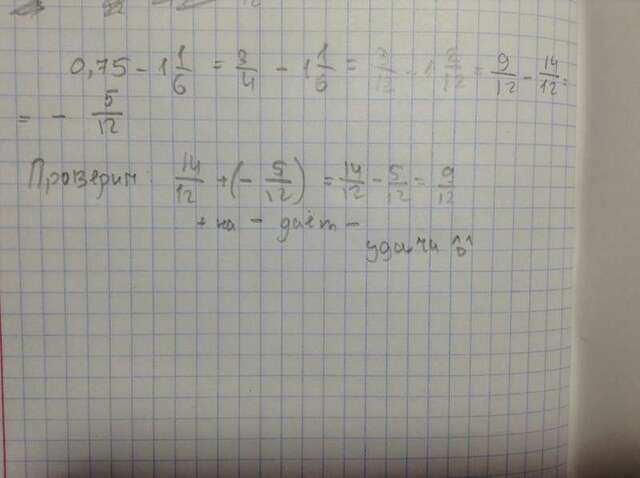 0,75 - 1 1/6 = 3/4 - 1 1/6 = 3/12 - 1 2/12 = 9/12 - 14/12 =
= - 5/12
Проверим: 14/12 + (- 5/12) = 14/12 - 5/12 = 9/12
+ на - даёт -
удачи ^o^